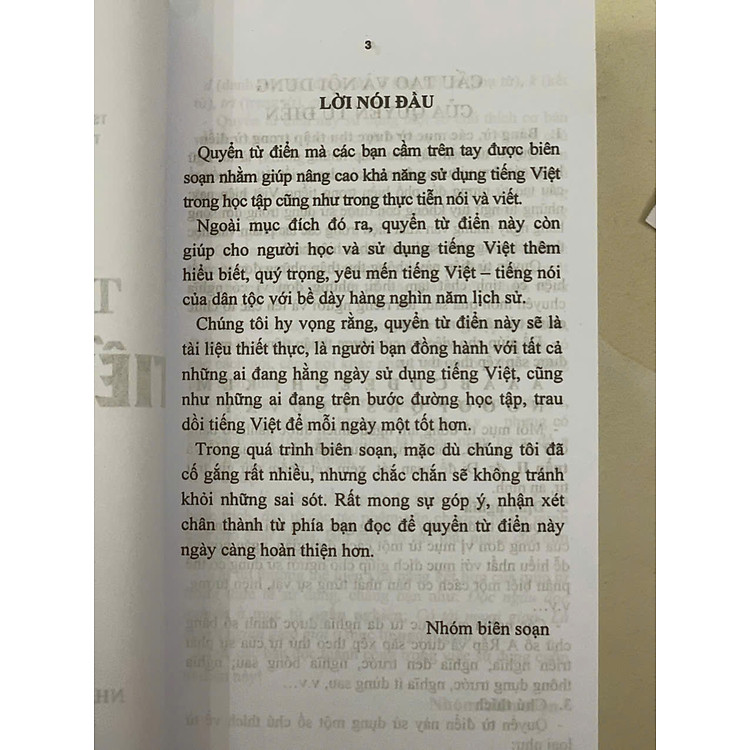 3
LỜI NÓI ĐẦU
Quyển từ điển mà các bạn cầm trên tay được biên
soạn nhằm giúp nâng cao khả năng sử dụng tiếng Việt
trong học tập cũng như trong thực tiễn nói và viết.
Ngoài mục đích đó ra, quyển từ điển này còn
giúp cho người học và sử dụng tiếng Việt thêm
hiểu biết, quý trọng, yêu mến tiếng Việt – tiếng nói
của dân tộc với bề dày hàng nghìn năm lịch sử.
Chúng tôi hy vọng rằng, quyển từ điển này sẽ là
tài liệu thiết thực, là người bạn đồng hành với tất cả
những ai đang hằng ngày sử dụng tiếng Việt, cũng
như những ai đang trên bước đường học tập, trau
dồi tiếng Việt để mỗi ngày một tốt hơn.
Trong quá trình biên soạn, mặc dù chúng tôi đã
cố gắng rất nhiều, nhưng chắc chắn sẽ không tránh
khỏi những sai sót. Rất mong sự góp ý, nhận xét
chân thành từ phía bạn đọc để quyển từ điển này
ngày càng hoàn thiện hơn.
Nhóm biên soạn